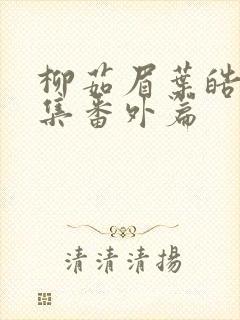 柳茹眉葉皓
集番外篇
清清清揚